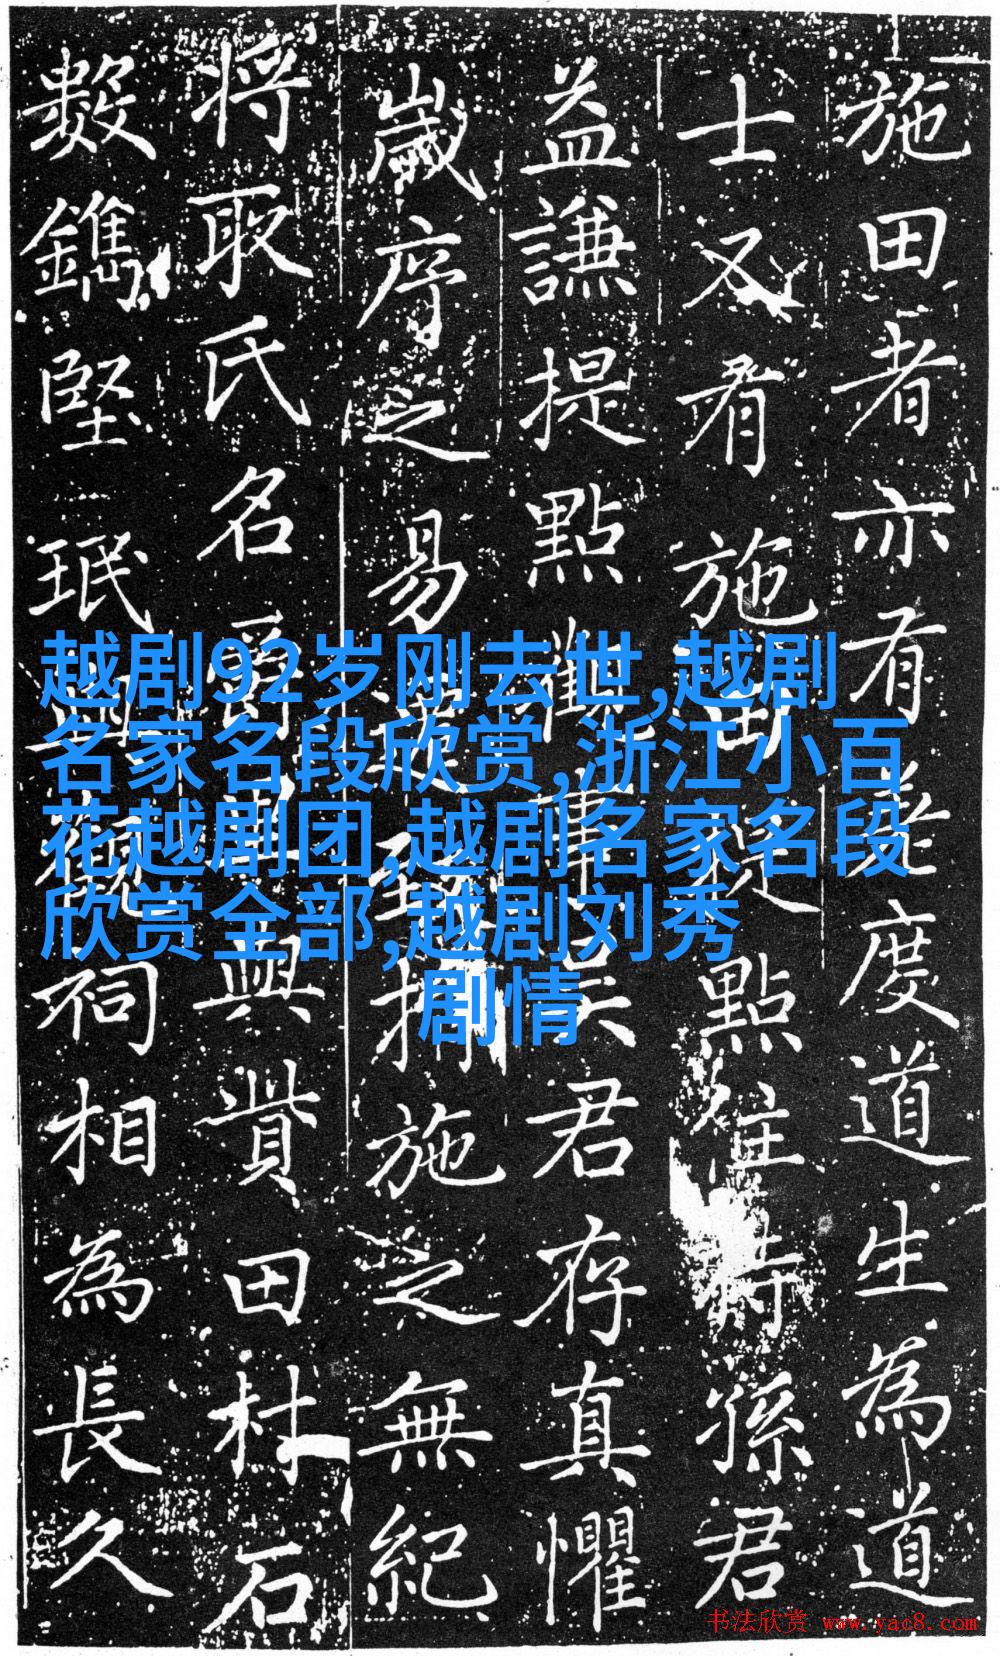 施田者亦有度道生為道
士又有施點住持孫君
益謙提點君存真懼
歲序之易施之無紀
將取氏名與貲田杜石
數鐫堅珉祠相為長久
越剧92岁刚去世,越剧
名家名段欣赏,浙江小百
花越剧团,越剧名家名段
欣赏全部,越剧刘秀
剧情
书法欣赏 www.yac8.com